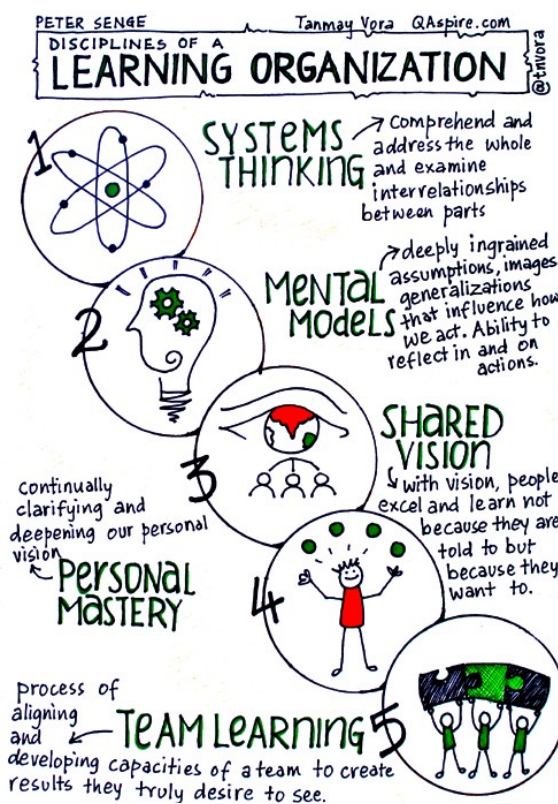 PETER SENGE
Tanmay Vora QAspire.com
DISCIPLINES OF A
LEARNING ORGANIZATION
@tnvora
1
SYSTEMS
THINKING
Comprehend and
address the whole
and examine
interrelationships
between parts
2
MENTAL
MODELS
deeply ingrained
assumptions, images
generalizations
that influence how
we act. Ability to
reflect in and on
actions.
3
SHARED
VISION
with vision, people
excel and learn not
because they are
told to but
because they
want to.
4
PERSONAL
MASTERY
continually
clarifying and
deepening our personal
vision
5
TEAM LEARNING
process of
aligning
and
developing capacities of a team to create
results they truly desire to see.